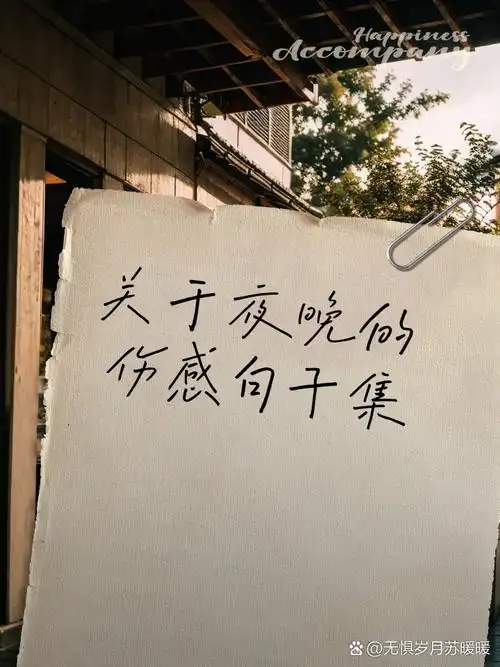 Happiness
Accompany
关于夜晚的
伤感句子集
@无惧岁月苏暖暖